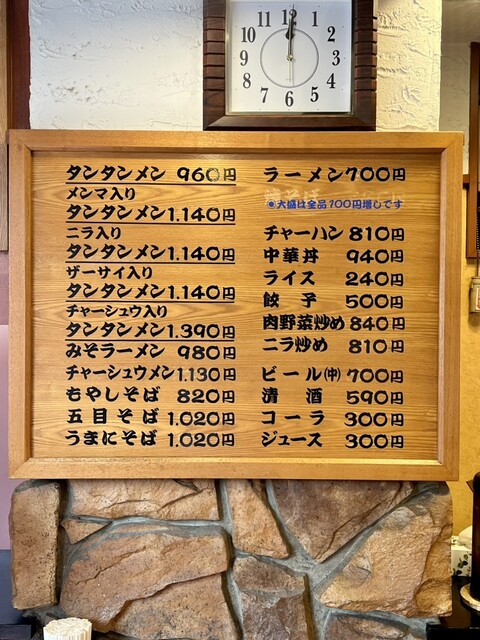 12
11
1
10
2
9
3
8
4
7
5
6
タンタンメン 960円
メンマ入り
タンタンメン 1.140円
ニラ入り
タンタンメン 1.140円
ザーサイ入り
タンタンメン 1.140円
チャーシュウ入り
タンタンメン 1.390円
みそラーメン 980円
チャーシュウメン 1.130円
もやしそば 820円
五目そば 1.020円
うまにそば 1.020円
ラーメン 700円
◉大盛は全品100円増しです
チャーハン 810円
中華丼 940円
ライス 240円
餃子 500円
肉野菜炒め 840円
ニラ炒め 810円
ビール(中) 700円
清酒 590円
コーラ 300円
ジュース 300円